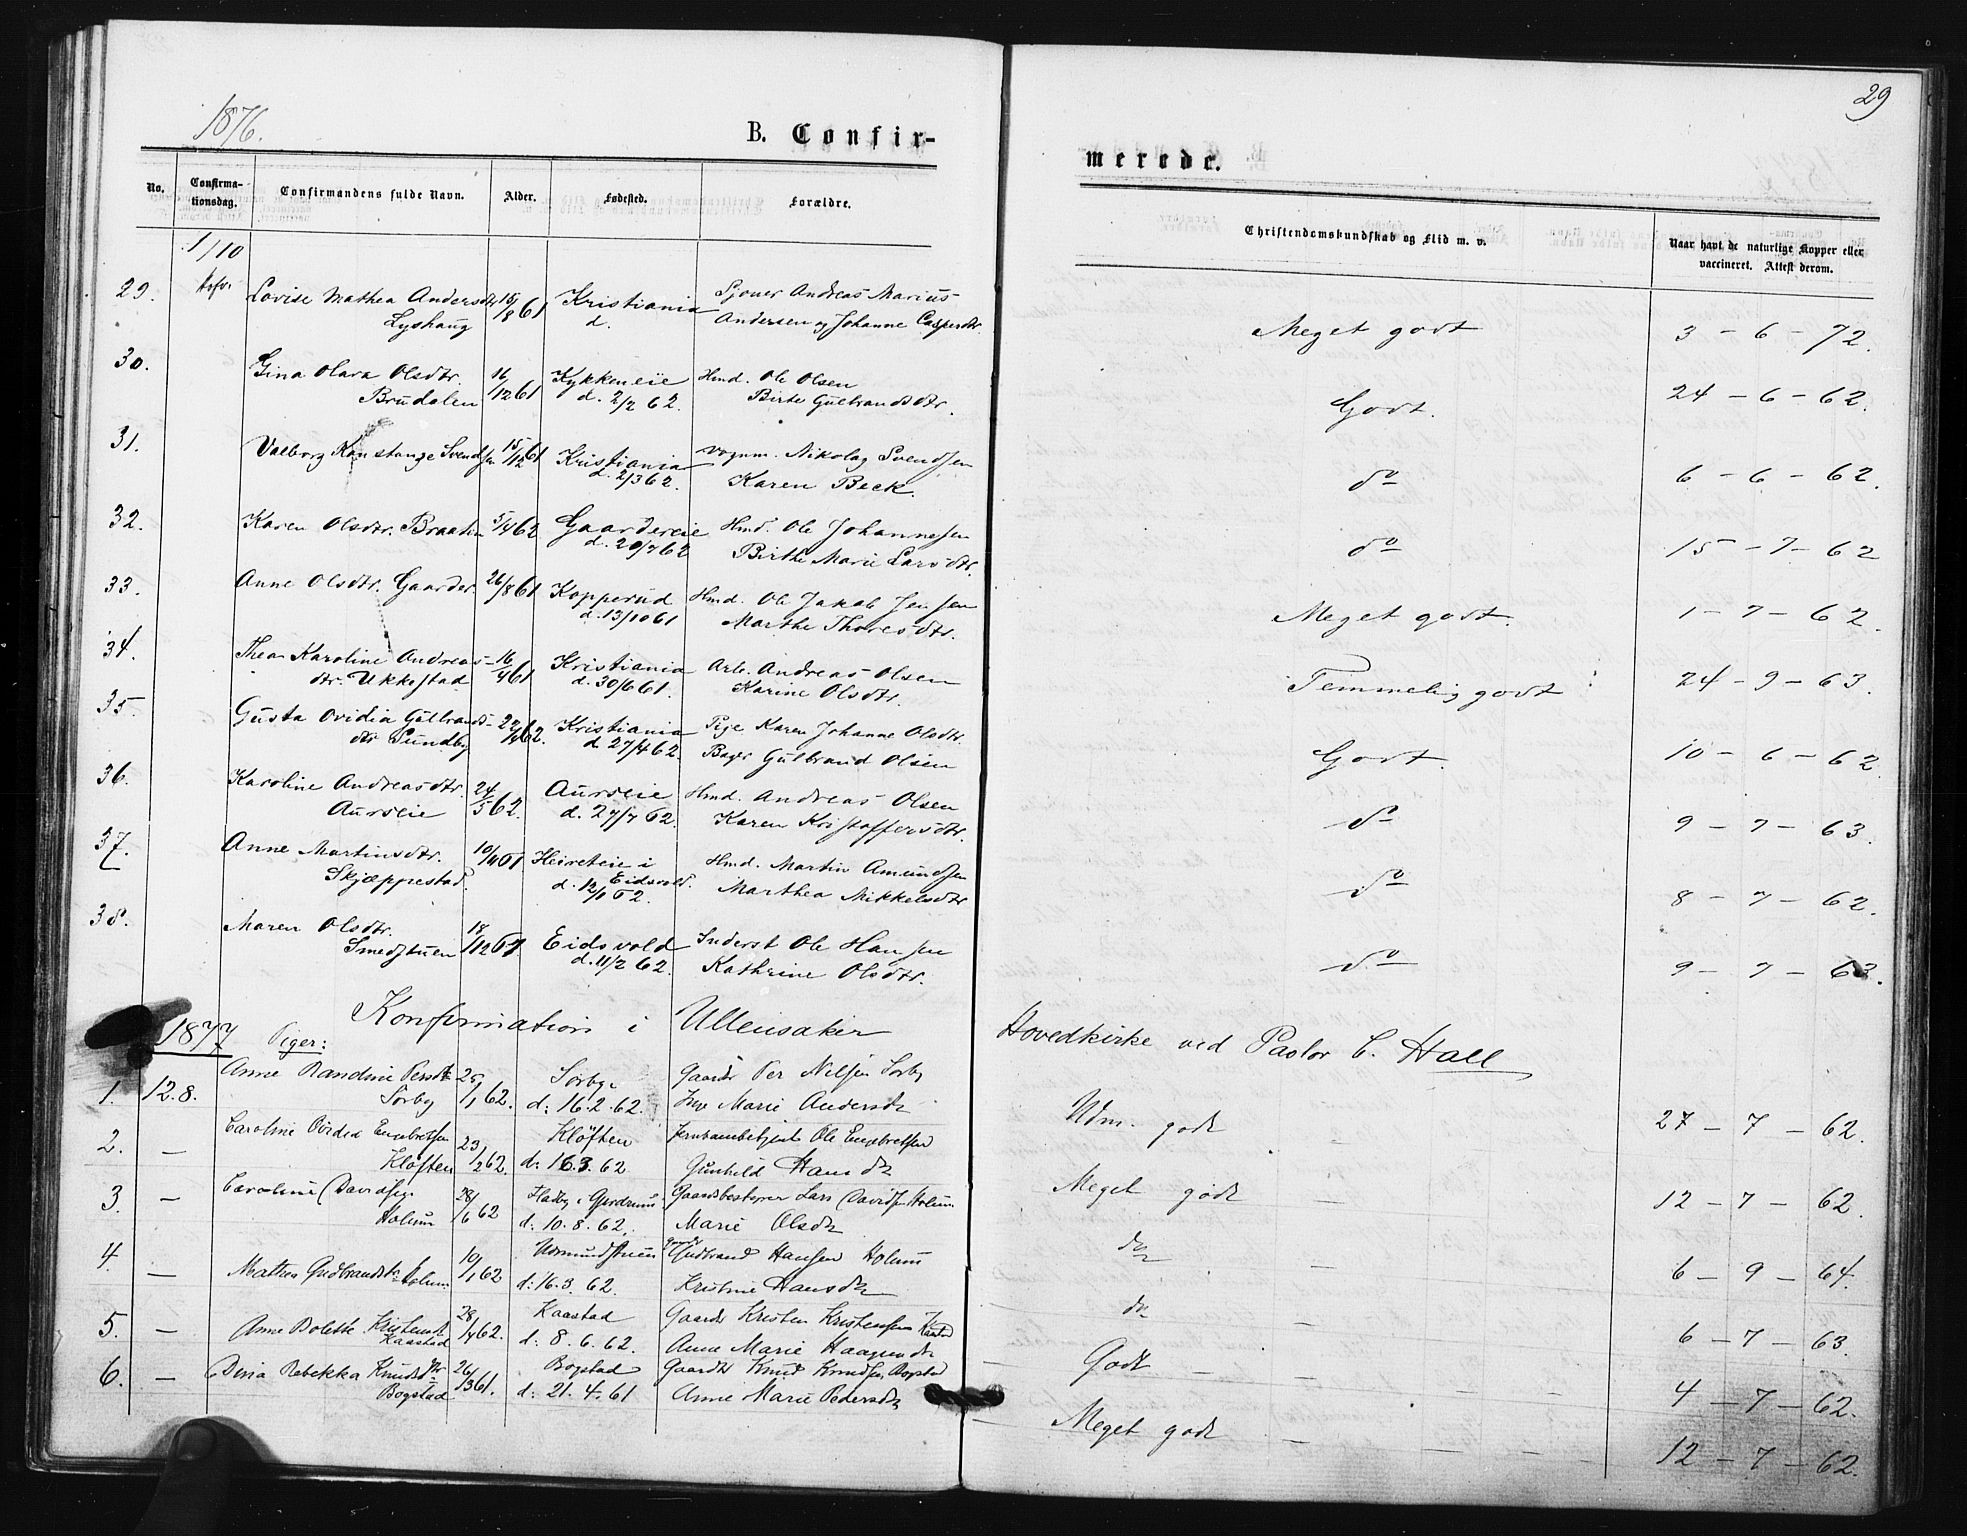 1876.
B. Confir-
No.
Confirma-
tionsdag.
Confirmandens fulde Navn.
Alder.
Fødested.
Forældre.
1/10
29. Lovise Mathea Andersdtr 15/8 61 Kristiania Andreas Marius
Lyshaug d. Andersen og Johanne Caspersdtr.
30. Gina Olava Olsdtr. 16/12 61 Kykkeneie Hmd. Ole Olsen
Brudalen d. 2/2 62. Birte Gulbrandsdtr.
31. Valborg Konstanze Svendsen 15/12 61 Kristiania Vognm. Nikolay Svendsen
d. 2/3 62. Karen Beck.
32. Karen Olsdtr. Braaten 5/4 62 Gaardereie Hmd. Ole Johannesen
d. 20/7 62 Birthe Marie Larsdtr.
33. Anne Olsdtr. Gaarder 26/8 61 Kopperud Hmd. Ole Jakob Jensen
d. 13/10 61 Marthe Thoresdtr.
34. Thea Karoline Andreas- 16/4 61 Kristiania Arb. Andreas Olsen
dtr. Ukkestad d. 30/6 61. Karine Olsdtr.
35. Gusta Ovidia Gulbrands- 62. Kristiania Pige Karen Johanne Olsdtr.
dtr Sundby d 27/4 62. Bager Gulbrand Olsen
36. Karoline Andreasdtr. 24/5 62. Aurseie Hmd. Andreas Olsen
Aurseie d. 27/7 62. Karen Kristoffersdtr.
37. Anne Martinsdtr. 10/11 61 i Hmd. Martin Amundsen
Skjæppestad Eidsvold. d. 12/1 62. Marthea Mikkelsdtr
38. Maren Olsdtr. 18/12 61 Eidsvold Inderst Ole Hansen
Smedstuen d. 11/2 62. Kathrine Olsdtr.
Konfirmation i Ullensaker
1877 Piger:
1. 12.8. Anne Randine Persdtr 25/1 62. Sorby Gaardbr Per Nilsen Sorby
Sorby d: 16.2.62. Inge Marie Andersdtr
2. — Caroline Ovidia Engebretsen 23/2 62. Kløften Jernbanebetjent Ole Engebretsen
Kløften d: 16.3.62. Gunhild Hansdtr
3. — Caroline Davidsen 28/6 62 i Gjerdrum Gaardsbestyrer Lars Davidsen Holum
Holum d: 10.8.62. Marie Olsdtr
4. — Mathea Gudbrandsdtr Holum 10/1 62 Gudbrand Hansen Holum
d: 16.3.62. Kristine Hansdtr
5. — Anne Bolette Kristensdtr 28/4 62. Kaastad Gaardbr Kristen Kristensen Kaastad
Kaastad d: 8.6.62. Anne Marie Haagensdtr
6. — Dina Rebekka Knudsdtr 26/3 61. Bogstad Gaardbr Knud Knudsen Bogstad
Bogstad d: 21.4.61 Anne Marie Pedersdtr
29
merede.
Christendomskundskab og Flid m. v.
Naar havt de naturlige Kopper eller
vaccineret. Attest derom.
Meget godt 3 - 6 - 72.
Godt. 24 - 6 - 62.
do 6 - 6 - 62.
do 15 - 7 - 62
Meget godt. 1 - 7 - 62.
Temmelig godt 24 - 9 - 63.
Godt. 10 - 6 - 62.
do 9 - 7 - 63.
do 8 - 7 - 62.
do 9 - 7 - 63.
Hovedkirke ved Pastor C. Hall
Udm. godt 27 - 7 - 62.
Meget godt — 12 - 7 - 62.
do — 6 - 9 - 64.
do 6 - 7 - 63.
Godt — — 4 - 7 - 62.
Meget godt — — — 12 - 7 - 62.